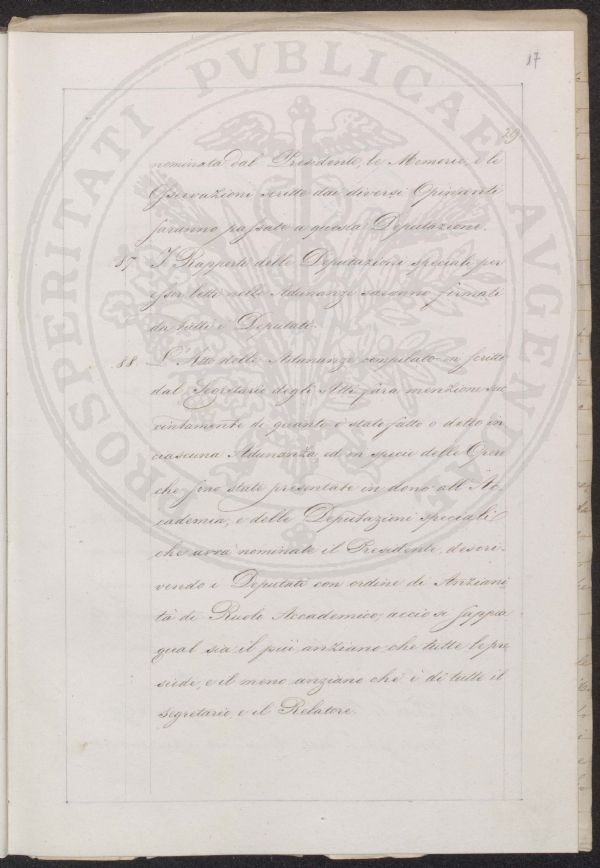 17
29
PROSPERITATI PVBLICAE AVGENDAE
nominata dal Presidente, le Memorie, e le
Osservazioni scritte dai diversi Opinanti
saranno passate a questa Deputazione.
87 I Rapporti delle Deputazioni speciali per
esser letti nelle Adunanze saranno firmati
da tutti i Deputati.
88. L'Atto delle Adunanze compilato in scritto
dal Segretario degli Atti farà menzione suc
cintamente di quanto è stato fatto o detto in
ciascuna Adunanza ed in specie delle Opere
che sino state presentate in dono all'Ac,
cademia, e delle Deputazioni speciali
che avrà nominate il Presidente, descri-
vendo i Deputati con ordine di Anziani
tà di Ruolo Accademico, acciò si sappia
qual sia il più anziano che tutte le pre
siede, e il meno anziano che è di tutte il
segretario, e il Relatore.